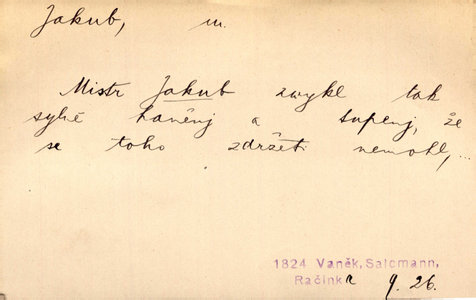 Jakub, m.
Mistr Jakub zwykl tak
sylně haněnj a tupenj, že
se toho zdržeti nemohl,...
1824 Vaněk, Salomann,
Račinka 9. 26.